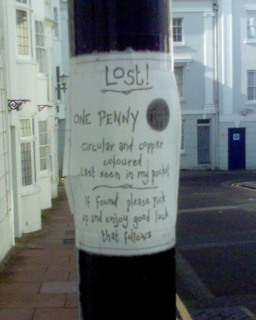 Lost!
ONE PENNY
circular and copper
coloured
Last seen in my pocket
If found please pick
up and enjoy good luck
that follows